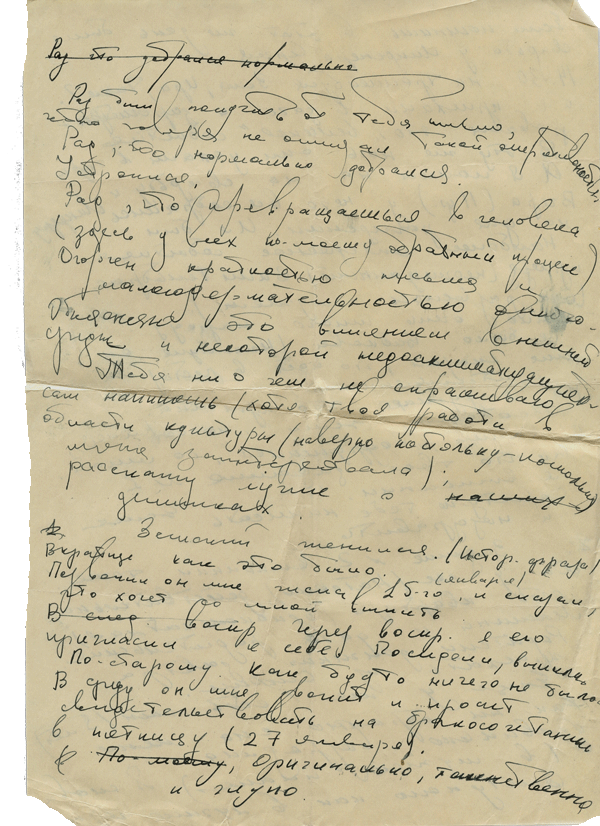 Раз что добрался нормально
Рад был получить от тебя письмо,
честно говоря не ожидал такой оперативности.
Рад, что нормально добрался.
Устроился,
Рад, что превращаешься в человека
(здесь у всех по-моему обратный процесс)
Огорчен краткостью письма и
малосодержательностью
Объясняю это влиянием внешней
среды и некоторой
Тебя ни о чем не спрашиваю,
сам напишешь (хотя твоя работа в
области культуры (наверно постольку-поскольку)
меня заинтересовала),
расскажу лучше о наших
делишках
женился. (Истор. фраза)
Вкратце как это было.
Позвонил он мне числа 25-го (января), и сказал,
что хочет со мной выпить
В след. воскр. через воскр. я его
пригласил к себе. Посидели, выпили.
По-старому как будто ничего не было.
В среду он мне звонит и просит
свидетельствовать на бракосочетании
в пятницу (27 января).
По-моему, оригинально, таинственно
и глупо.